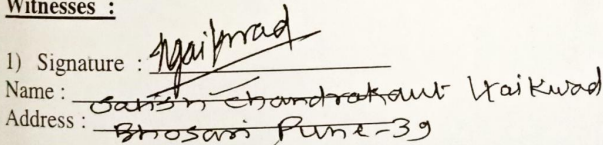 Witnesses :
1) Signature : Sgaikwad
Name : Sachin Chandrakant Gaikwad
Address : Bhosari Pune-39